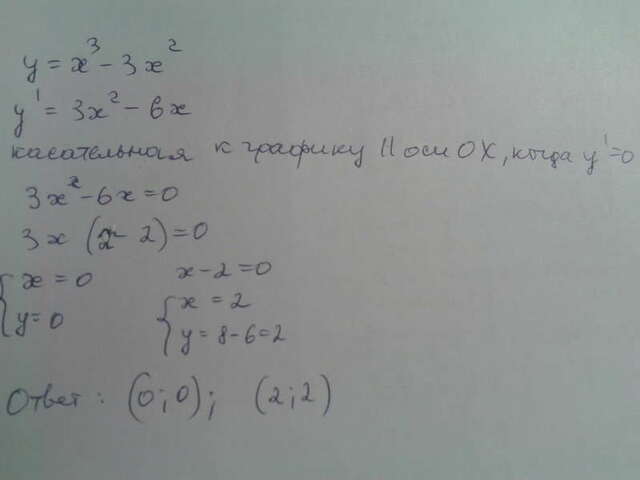 y = x³ - 3x²
y' = 3x² - 6x
касательная к графику || оси OX, когда y' = 0
3x² - 6x = 0
3x (x - 2) = 0
{ x = 0 x - 2 = 0
y = 0 { x = 2
y = 8 - 6 = 2
Ответ: (0; 0); (2; 2)